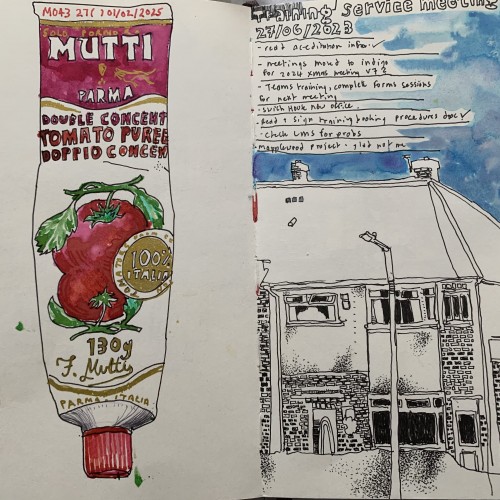 M043 27( ) 01/02/2025
SOLO POMODORO
MUTTI
PARMA
DOUBLE CONCENT
TOMATO PUREE
DOPPIO CONCEN
100%
ITALIA
130g
F. Mutti
PARMA ITALIA
Training Service meeting
27/06/2023
- read accreditation info
- meetings moved to indigo
for 2024 xmas meeting
- Teams training, complete forms sessions
for next meeting
- swish Houk new office
- Read & sign training booking procedures doc
- check LMS for probs
Mapplewood project - glad not me